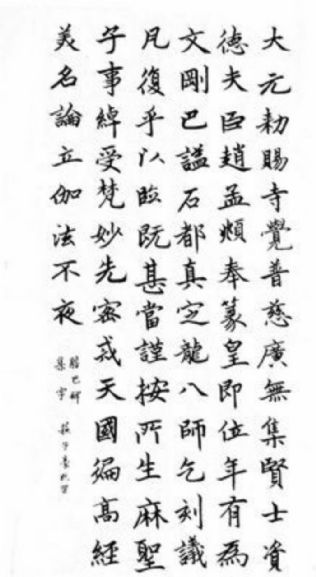 大元勑賜寺覺普慈廣無集賢士資
德夫臣趙孟頫奉篆皇即位年有為
文剛巴謚石都真定龍八師乞刻議
凡復乎以臨既甚當謹按所生麻聖
子事綽受梵妙先密戒天國徧高經
美名論立伽法不夜
膽巴碑
集字